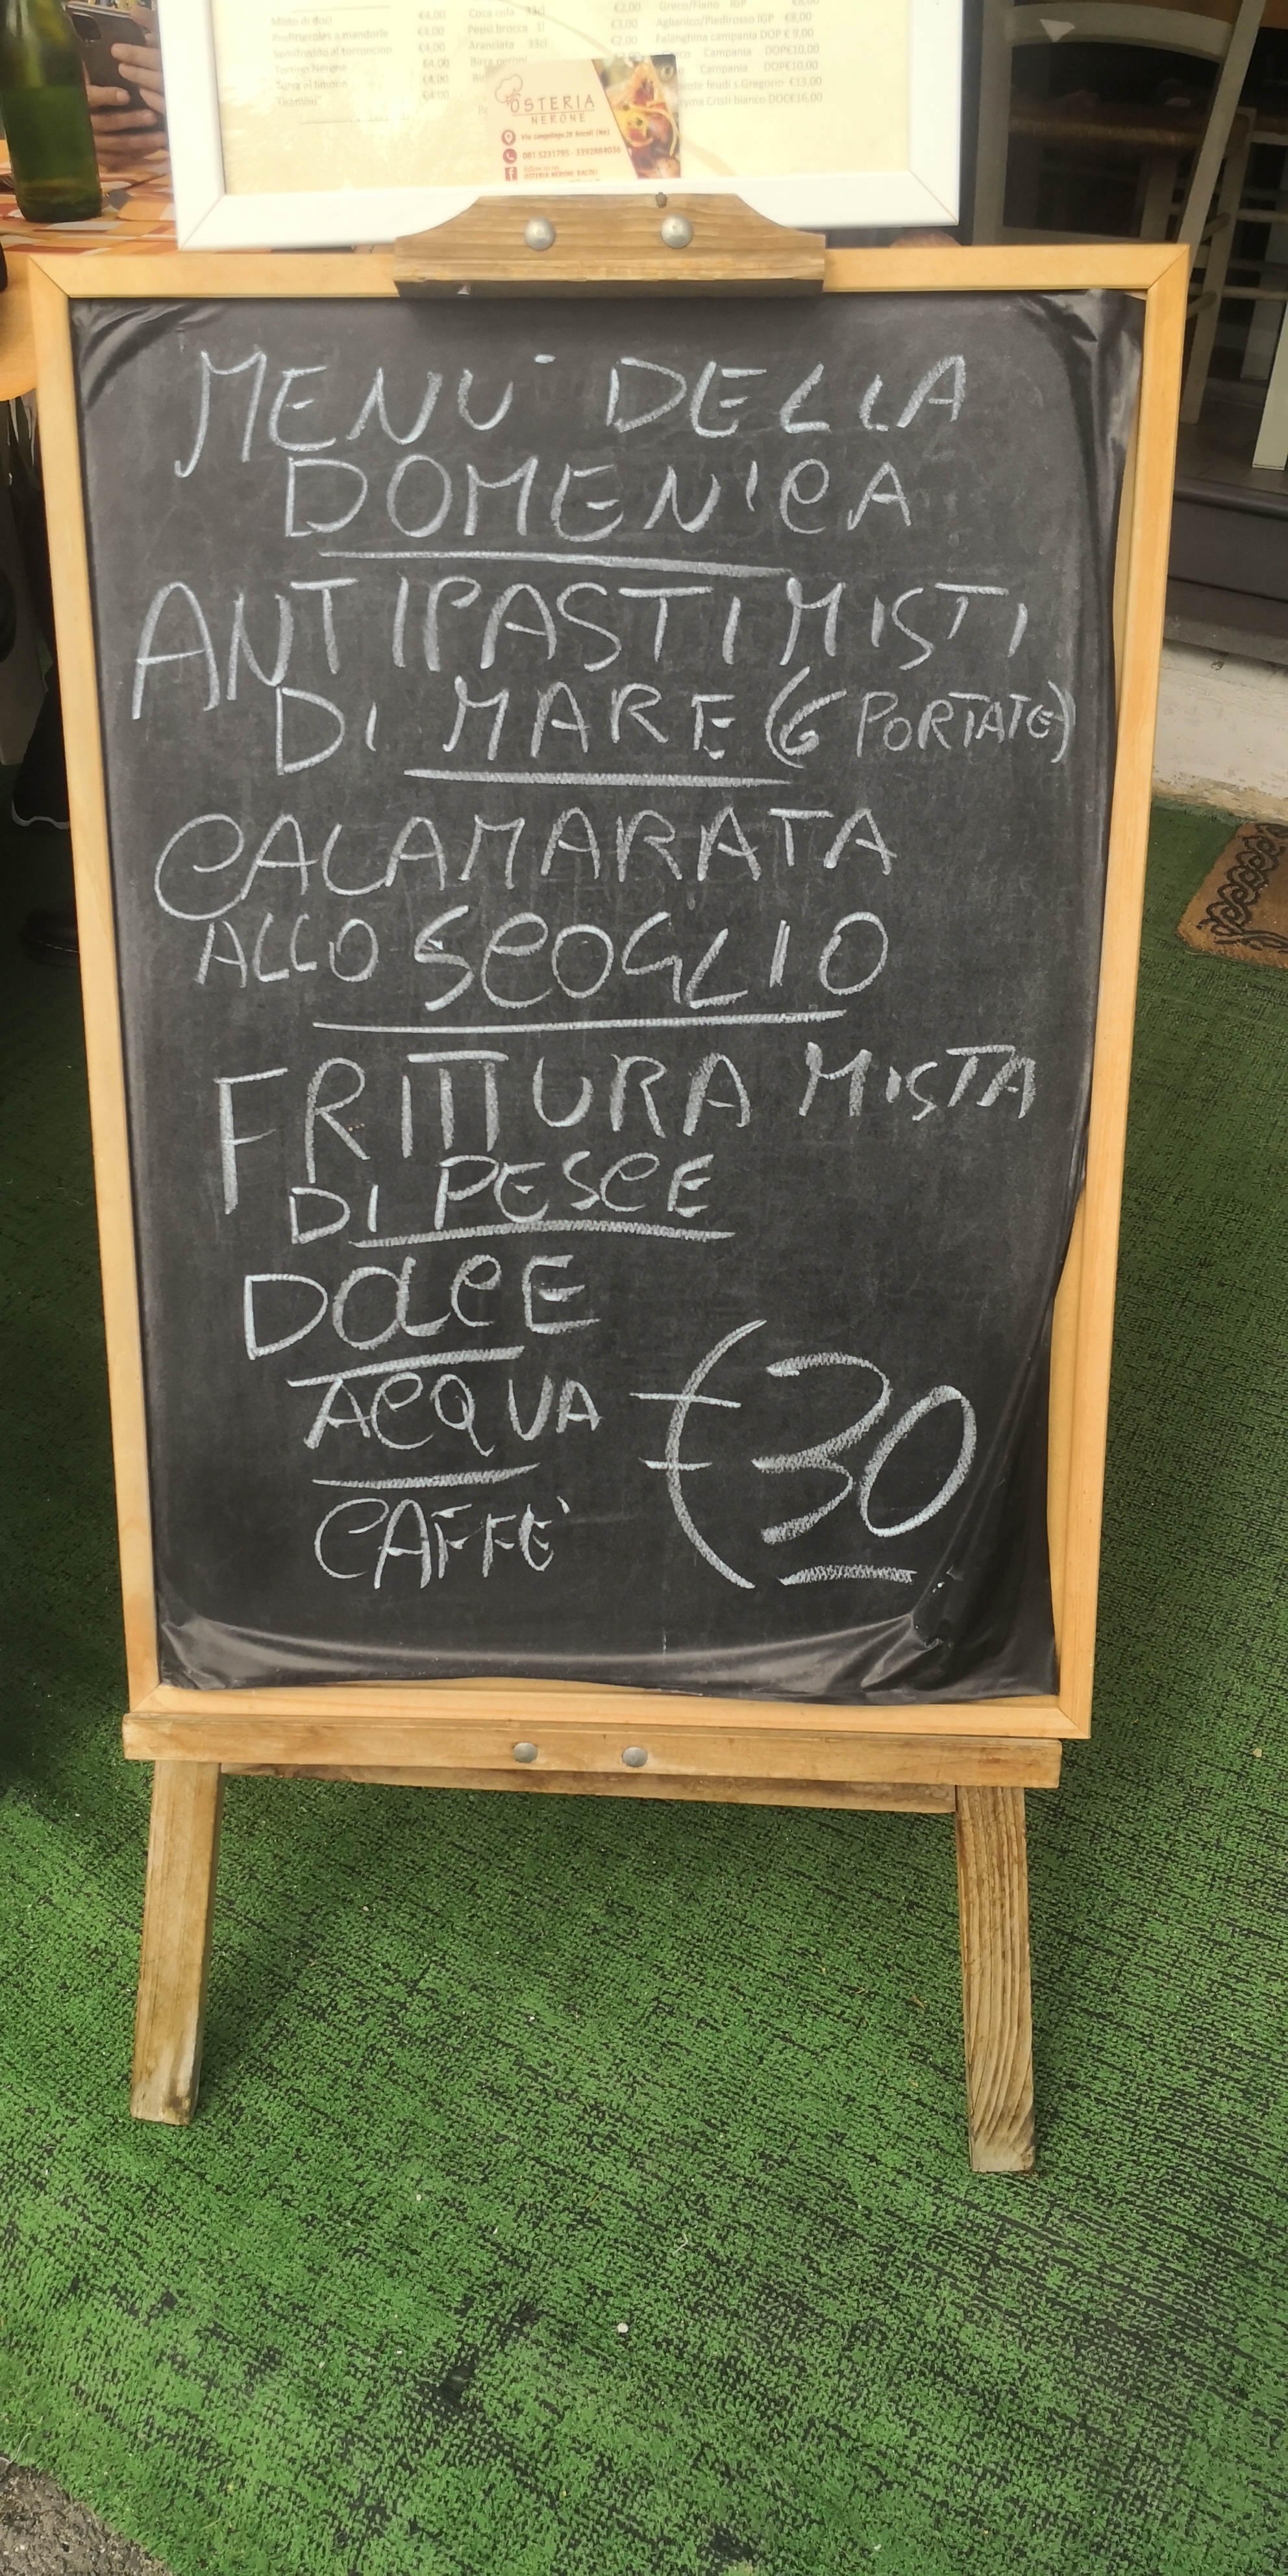 Misto di dolci €4,00
Profitterolès a mandorle €4,00
Semifreddo al torroncino €4,00
Tortino Nerone €4,00
€4,00
Tiramisù €4,00
Coca cola 33cl €2,00
Pepsi brocca 1l €3,00
Aranciata 33cl €2,00
Birra peroni
Greco/Fiano IGP €8,00
Aglianico/Piedirosso IGP €8,00
Falanghina campania DOP € 9,00
Campania DOP€10,00
Campania DOP€10,00
feudi s.Gregorio €13,00
Cristi bianco DOC€16,00
OSTERIA
NERONE
Via Lungolago,20 Bacoli (Na)
081 5231795 - 3392884036
follow us on
OSTERIA NERONE BACOLI
MENÙ DELLA
DOMENICA
ANTIPASTI MISTI
DI MARE (6 PORTATE)
CALAMARATA
ALLO SCOGLIO
FRITTURA MISTA
DI PESCE
DOLCE
ACQUA
€30
CAFFÈ